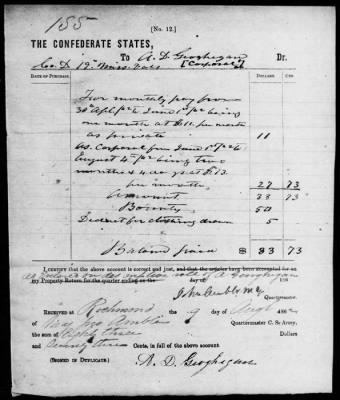 155
[No. 12.]
THE CONFEDERATE STATES,
To A. D. Geoghegan Dr.
Co. D 12" Miss. Vols [Corporal]
DATE OF PURCHASE. DOLLARS CTS.
For monthly pay from
30th April to June 1st being
one month at $11 per month
as private 11
As Corporal from June 1st to
August 4th being two
months & 4 days at $13
per month 27 73
Amount 38 73
Bounty 50
Deduct for clothing drawn 5
Balance $ 83 73
I CERTIFY that the above account is correct and just, and that the articles have been accepted for on
my Property Return for the quarter ending on the day of 186
Quartermaster.
RECEIVED AT Richmond the 9 day of Augt 186
of Maj Jno Ambler Quartermaster C. S. Army,
the sum of Eighty three Dollars
and Seventy three Cents, in full of the above account.
(SIGNED IN DUPLICATE.) A. D. Geoghegan